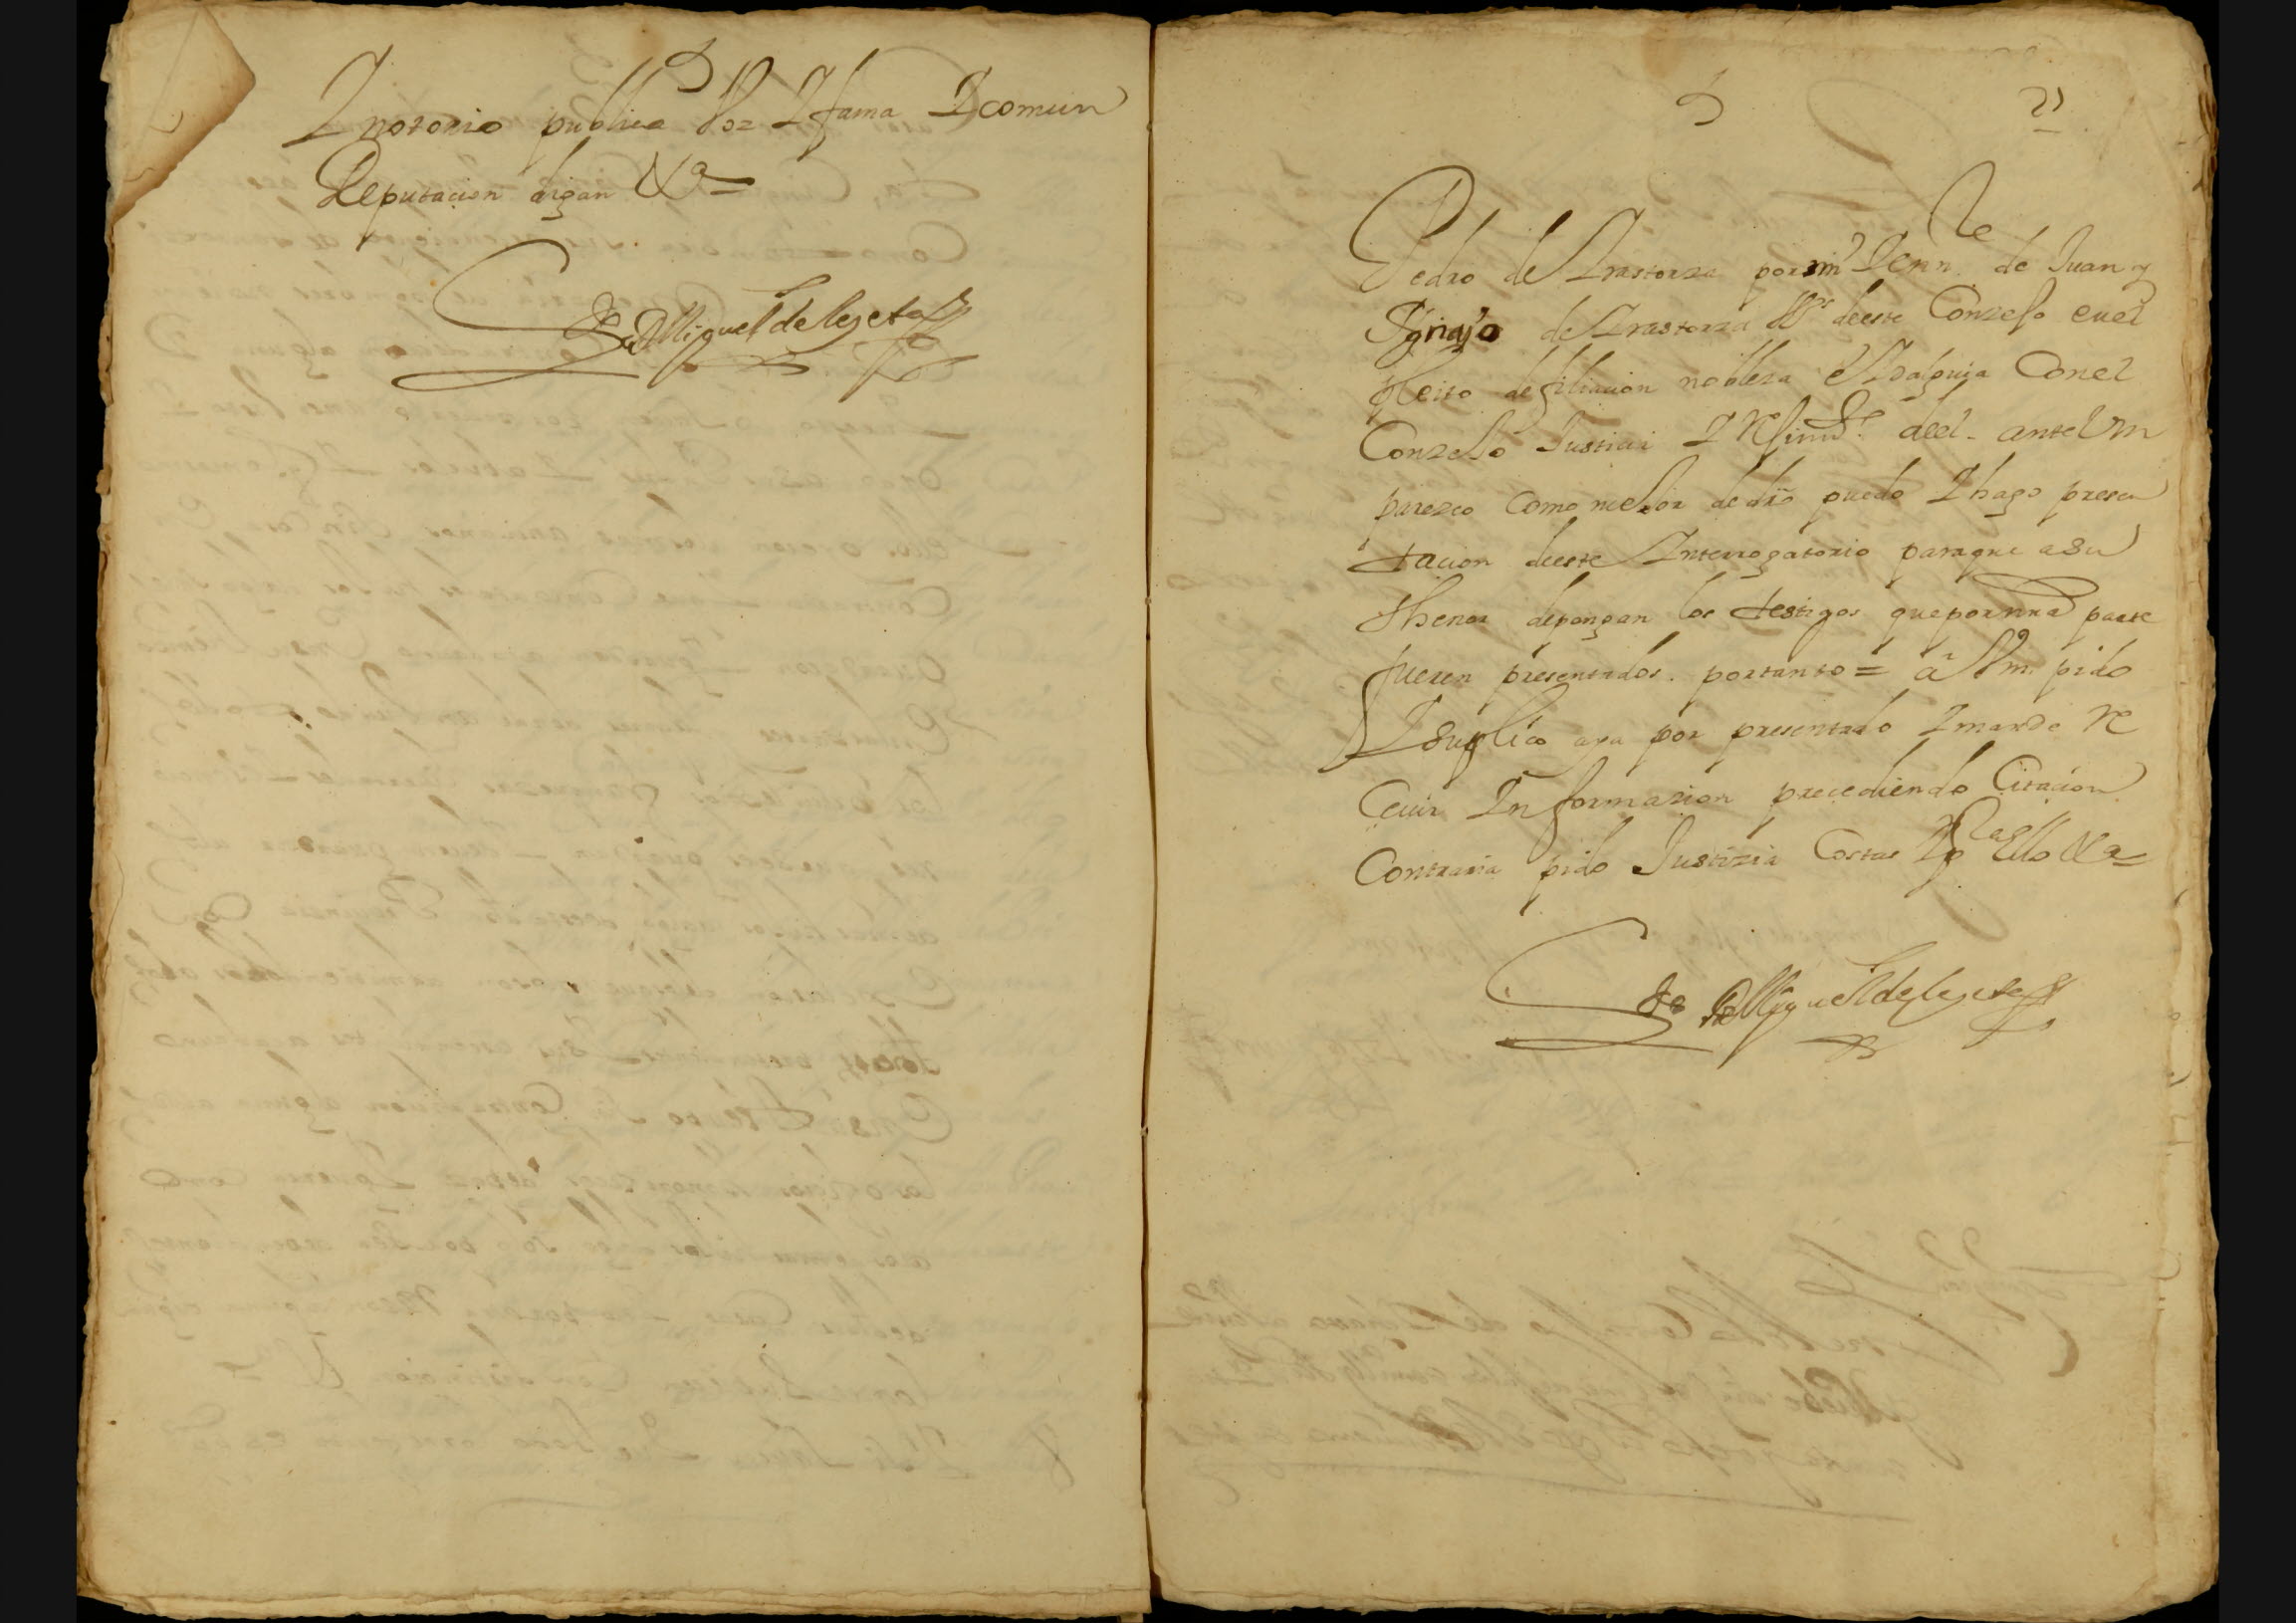 Y notorio publica voz Y fama Y comun
Reputacion digan &a
Miguel de legeta
21
Pedro de Yrastorza por mi Y en ne de Juan y
Ygnazio de Yrastorza Vos de este Conzejo en el
pleito de filiacion nobleza e Ydalguia Con el
Conzejo Justicia Y Rejimto de el. ante Vm
parezco Como mejor de dro puedo Y hago presen
tacion de este Ynterrogatorio para que a su
thenor depongan los testigos que por mi parte
fueren presentados. por tanto = a Vm. pido
Y suplico aya por presentado Y mande Re
Cevir Ynformazion precediendo Citacion
Contraria pido Justizia Costas Y pa Ello &a
Miguel de legeta